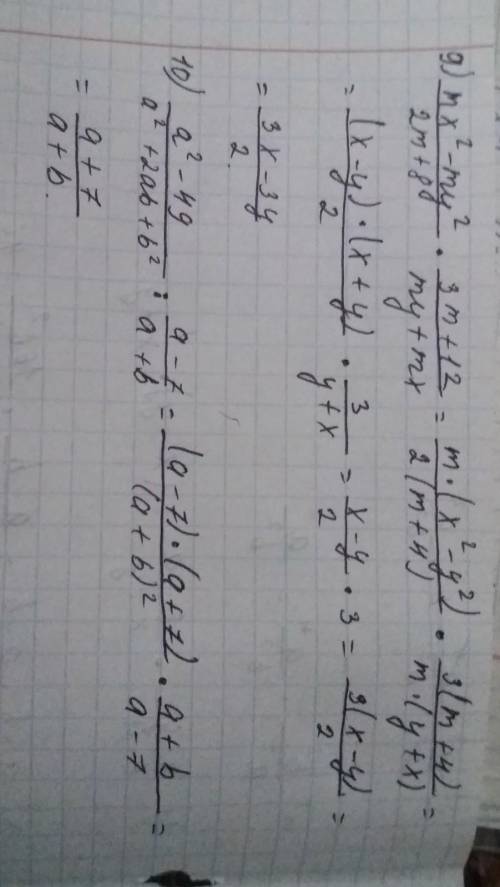 9) (mx² - my²)/(2m + 8) · (3m + 12)/(my + mx) = (m · (x² - y²))/(2(m + 4)) · (3(m + 4))/(m · (y + x)) =
= ((x - y) · (x + y))/2 · 3/(y + x) = (x - y)/2 · 3 = (3(x - y))/2 =
= (3x - 3y)/2.
10) (a² - 49)/(a² + 2ab + b²) : (a - 7)/(a + b) = ((a - 7) · (a + 7))/((a + b)²) · (a + b)/(a - 7) =
= (a + 7)/(a + b).